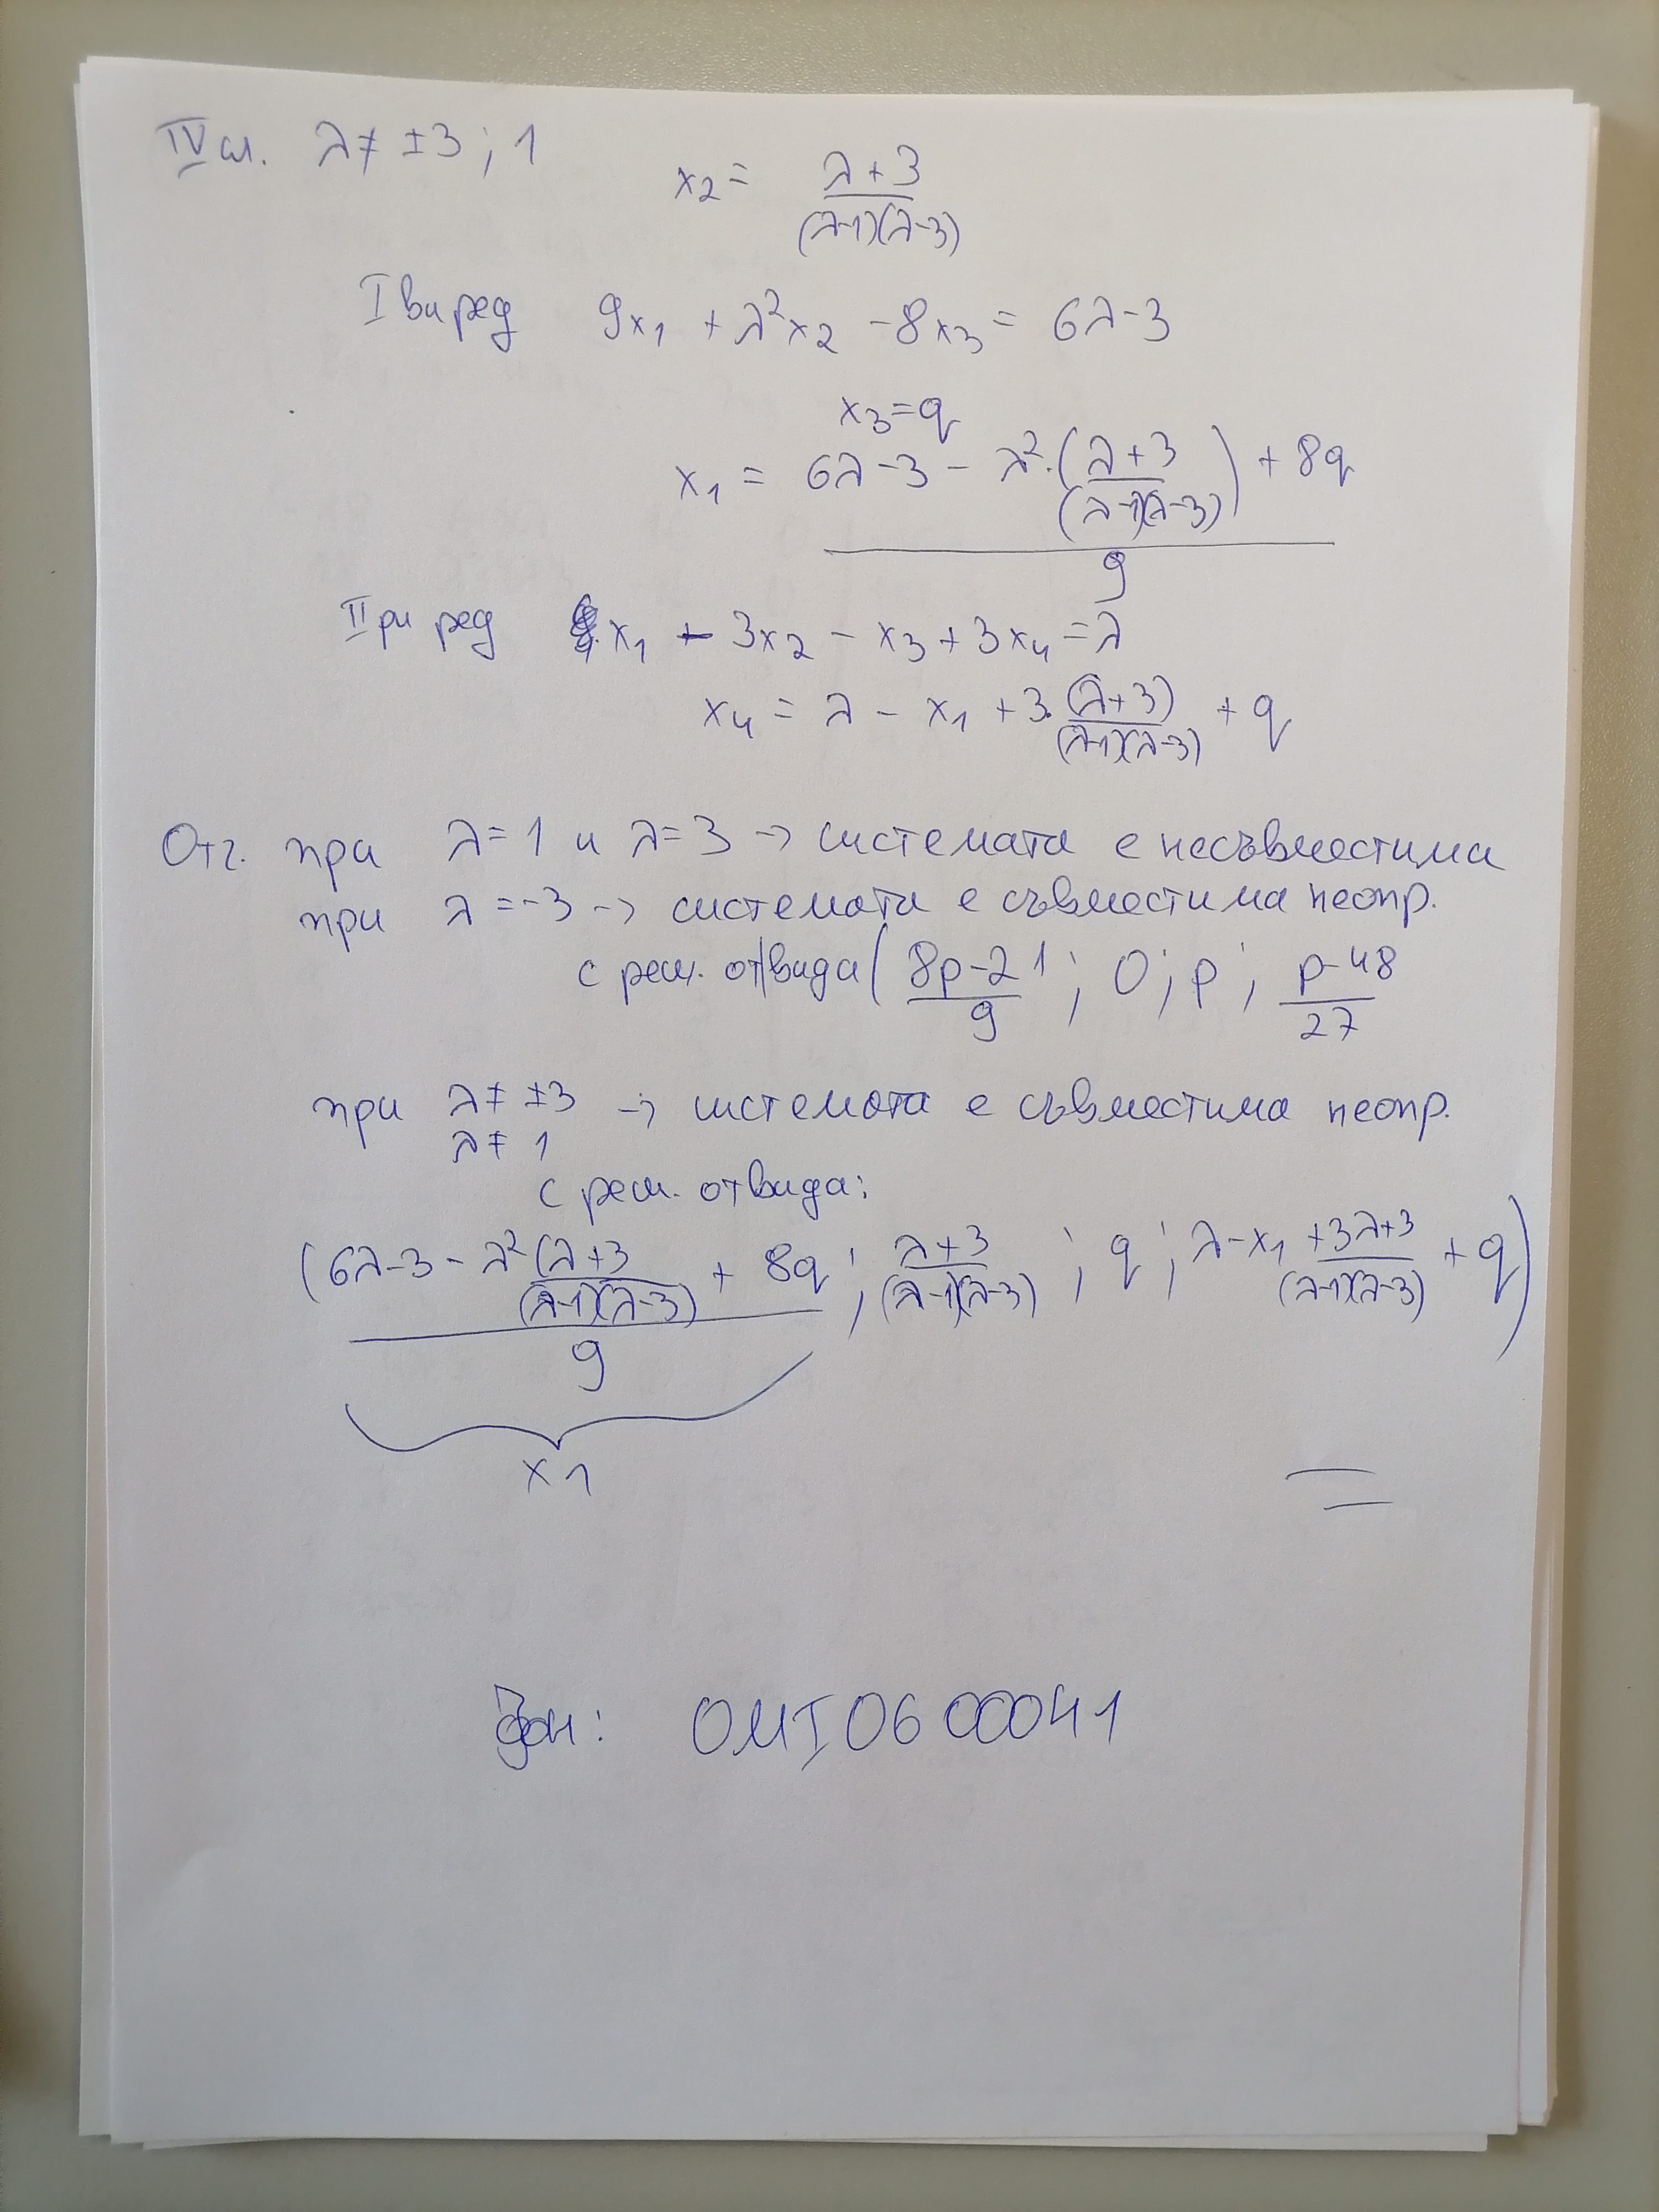 IV сл. λ ≠ ±3; 1
x₂ = (λ+3)/((λ-1)(λ-3))
I ви ред 9x₁ + λ²x₂ - 8x₃ = 6λ-3
x₃ = q
x₁ = (6λ-3 - λ²·((λ+3)/((λ-1)(λ-3))) + 8q)/9
II ри ред x₁ - 3x₂ - x₃ + 3x₄ = λ
x₄ = λ - x₁ + 3·(λ+3)/((λ-1)(λ-3)) + q
Отг. при λ=1 и λ=3 → системата е несъвместима
при λ=-3 → системата е съвместима неопр.
с реш. от вида ((8p-21)/9; 0; p; (p-48)/27
при λ ≠ ±3 → системата е съвместима неопр.
λ ≠ 1
с реш. от вида:
((6λ-3 - λ²((λ+3)/((λ-1)(λ-3)) + 8q)/9; (λ+3)/((λ-1)(λ-3)); q; λ-x₁ + (3λ+3)/((λ-1)(λ-3)) + q)
x₁
0MI0600041